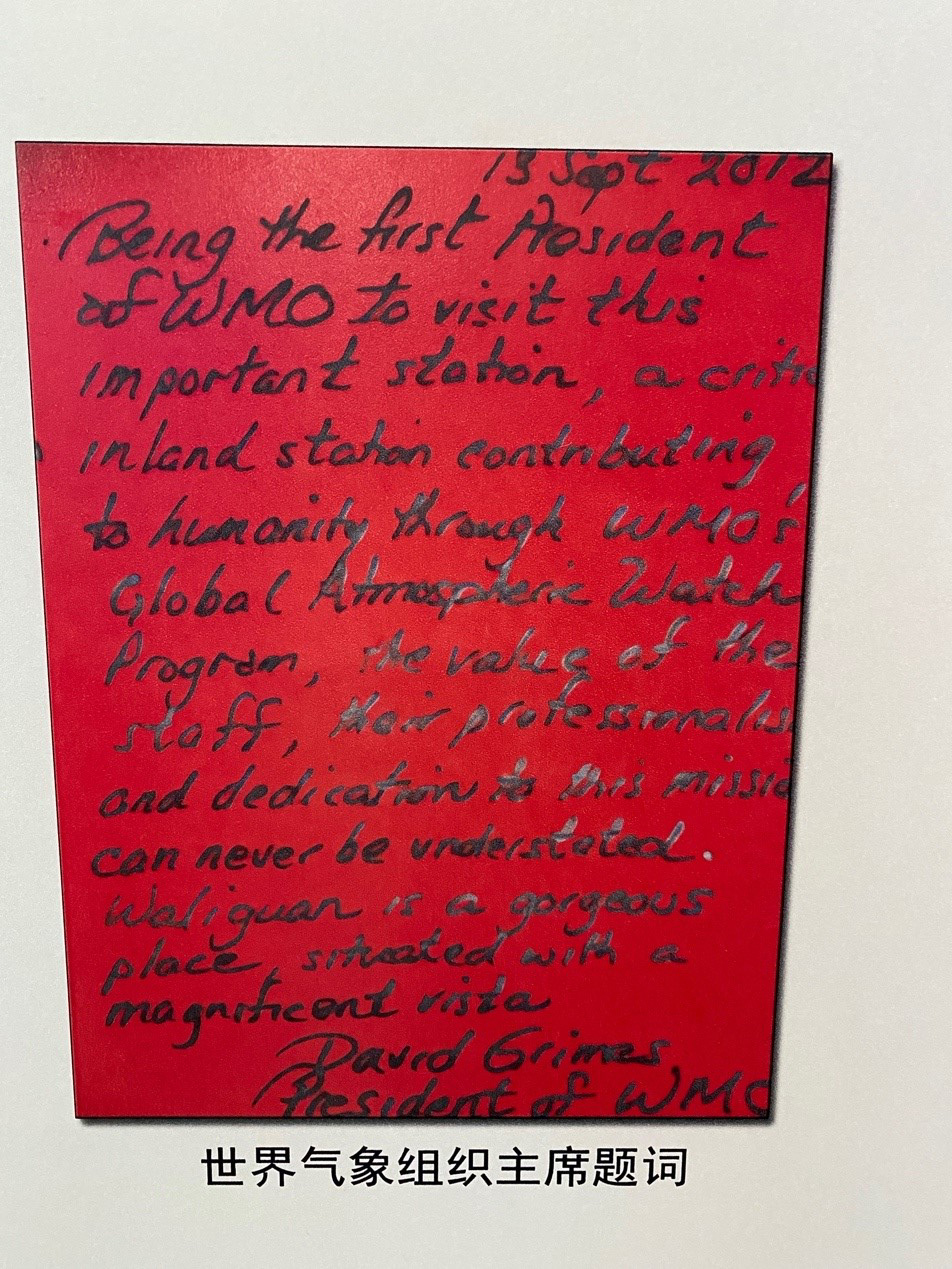 13 Sept 2012
Being the first President
of WMO to visit this
important station, a critic
inland station contributing
to humanity through WMO's
Global Atmospheric Watch
Program, the value of the
staff, their professionalis
and dedication to this missio
can never be understated.
Waliguan is a gorgeous
place, situated with a
magnificent vista
David Grimes
President of WMO
世界气象组织主席题词